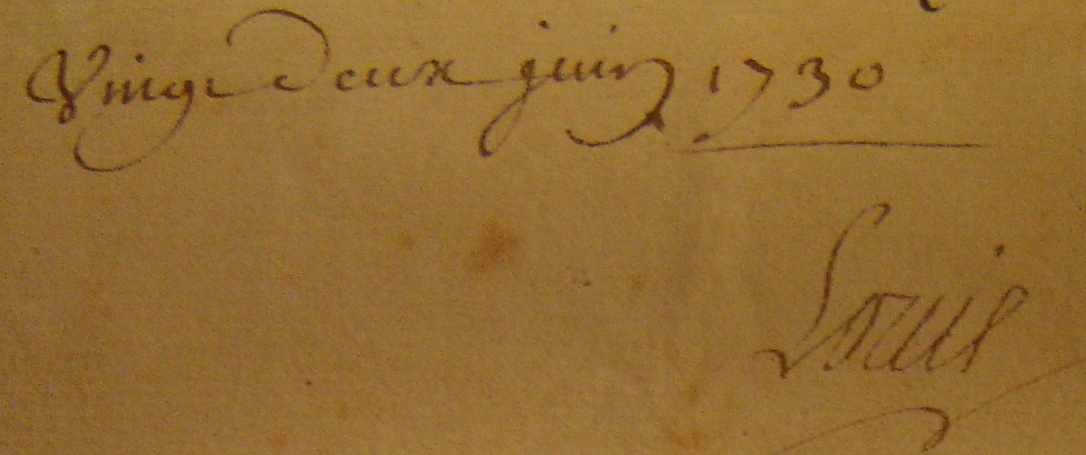 Vingt Deux juin 1730
Louis